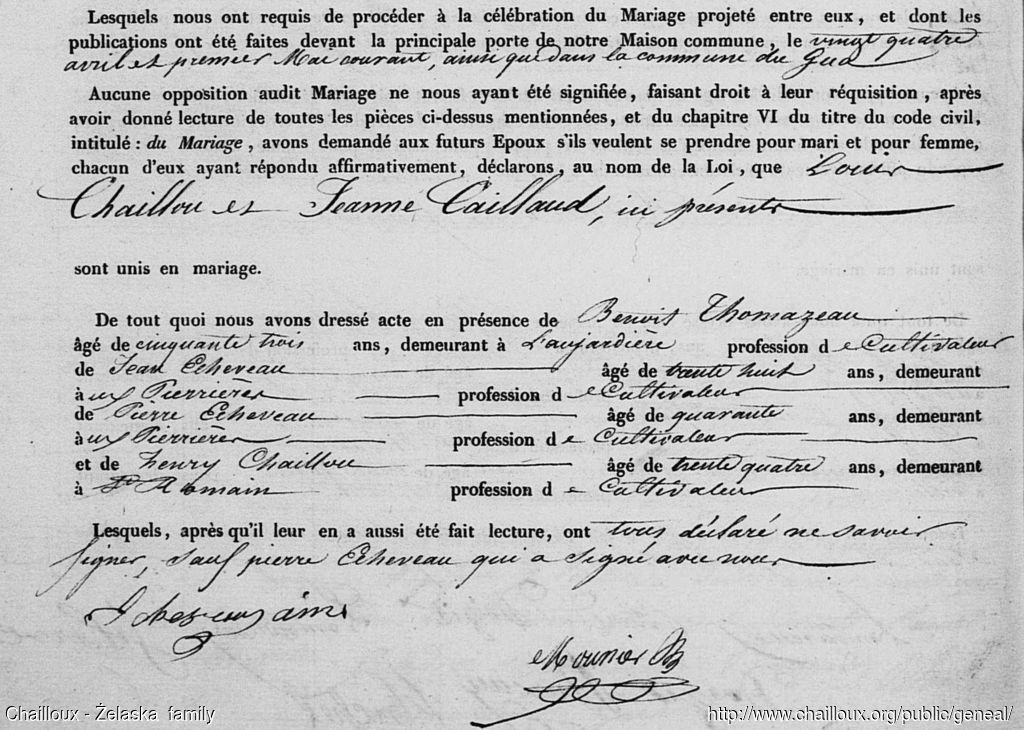 Lesquels nous ont requis de procéder à la célébration du Mariage projeté entre eux, et dont les
publications ont été faites devant la principale porte de notre Maison commune, le vingt quatre
avril et premier Mai courant, ainsi que dans la commune du Gua
Aucune opposition audit Mariage ne nous ayant été signifiée, faisant droit à leur réquisition, après
avoir donné lecture de toutes les pièces ci-dessus mentionnées, et du chapitre VI du titre du code civil,
intitulé : du Mariage, avons demandé aux futurs Epoux s'ils veulent se prendre pour mari et pour femme,
chacun d'eux ayant répondu affirmativement, déclarons, au nom de la Loi, que Louis
Chaillou et Jeanne Caillaud, ici présents
sont unis en mariage.
De tout quoi nous avons dressé acte en présence de Benoit Thomazeau
âgé de cinquante trois ans, demeurant à L'aujardière profession de Cultivateur
de Jean Echeveau âgé de trente huit ans, demeurant
à ux Pierrières profession de Cultivateur
de Pierre Echeveau âgé de quarante ans, demeurant
à ux Pierrières profession de Cultivateur
et de henry Chaillou âgé de trente quatre ans, demeurant
à St Romain profession de Cultivateur
Lesquels, après qu'il leur en a aussi été fait lecture, ont tous déclaré ne savoir
signer, sauf pierre Echeveau qui a signé avec nous
Mounier
Chailloux - Żelaska family
http://www.chailloux.org/public/geneal/